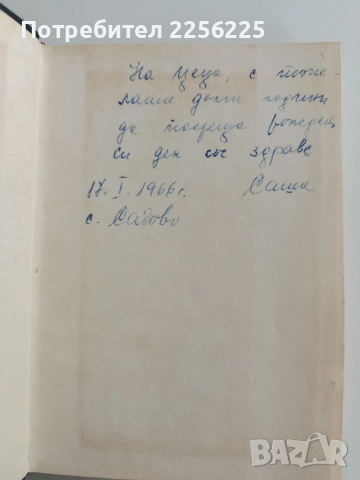 Потребител 2256225
На Цеца, с поже-
лание дълги години
да посреща рожден,
си ден със здраве
17. I. 1966г. Саша
с. Садово
BAZAR